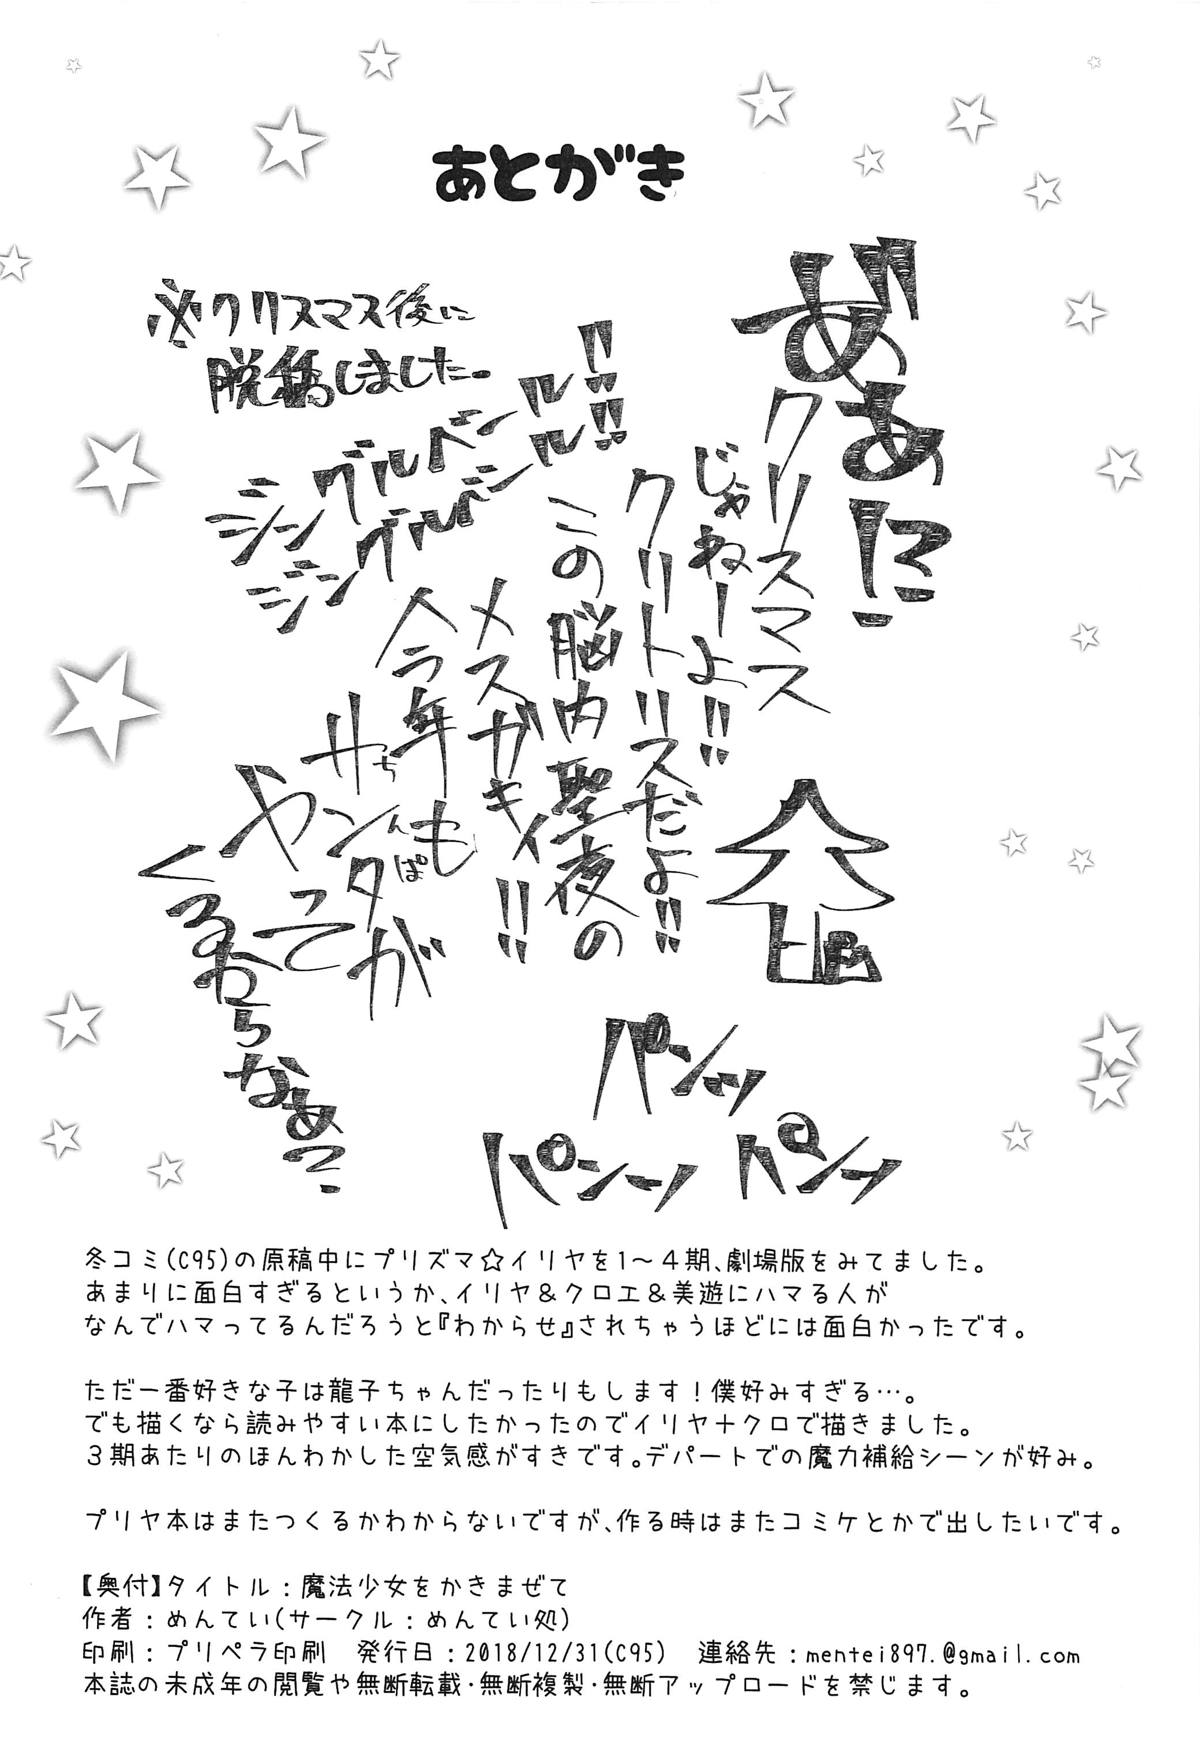 あとがき
※クリスマス後に
脱稿しました。
ジングルベール!!
ジングルベール!!
冬コミ(C95)の原稿中にプリズマ☆イリヤを1～4期、劇場版をみてました。
あまりに面白すぎるというか、イリヤ＆クロエ＆美遊にハマる人が
なんでハマってるんだろうと『わからせ』されちゃうほどには面白かったです。
ただ一番好きな子は龍子ちゃんだったりもします！僕好みすぎる…。
でも描くなら読みやすい本にしたかったのでイリヤ＋クロで描きました。
3期あたりのほんわかした空気感がすきです。デパートでの魔力補給シーンが好み。
プリヤ本はまたつくるかわからないですが、作る時はまたコミケとかで出したいです。
【奥付】タイトル：魔法少女をかきまぜて
作者：めんてい(サークル：めんてい処)
印刷：プリペラ印刷　発行日：2018/12/31(C95)　連絡先：mentei897.@gmail.com
本誌の未成年の閲覧や無断転載・無断複製・無断アップロードを禁じます。